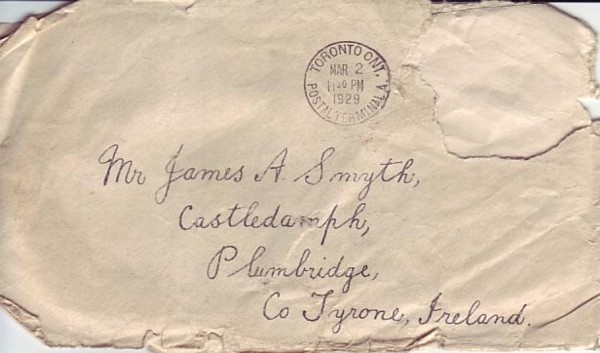 TORONTO ONT.
MAR 2
11 30 PM
1929
POSTAL TERMINAL A.
Mr James A. Smyth,
Castledamph,
Plumbridge,
Co Tyrone, Ireland.